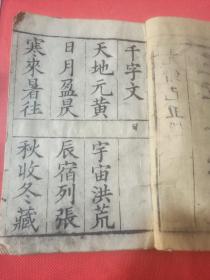 千字文
天地元黄
宇宙洪荒
日月盈昃
辰宿列張
寒來暑往
秋收冬藏